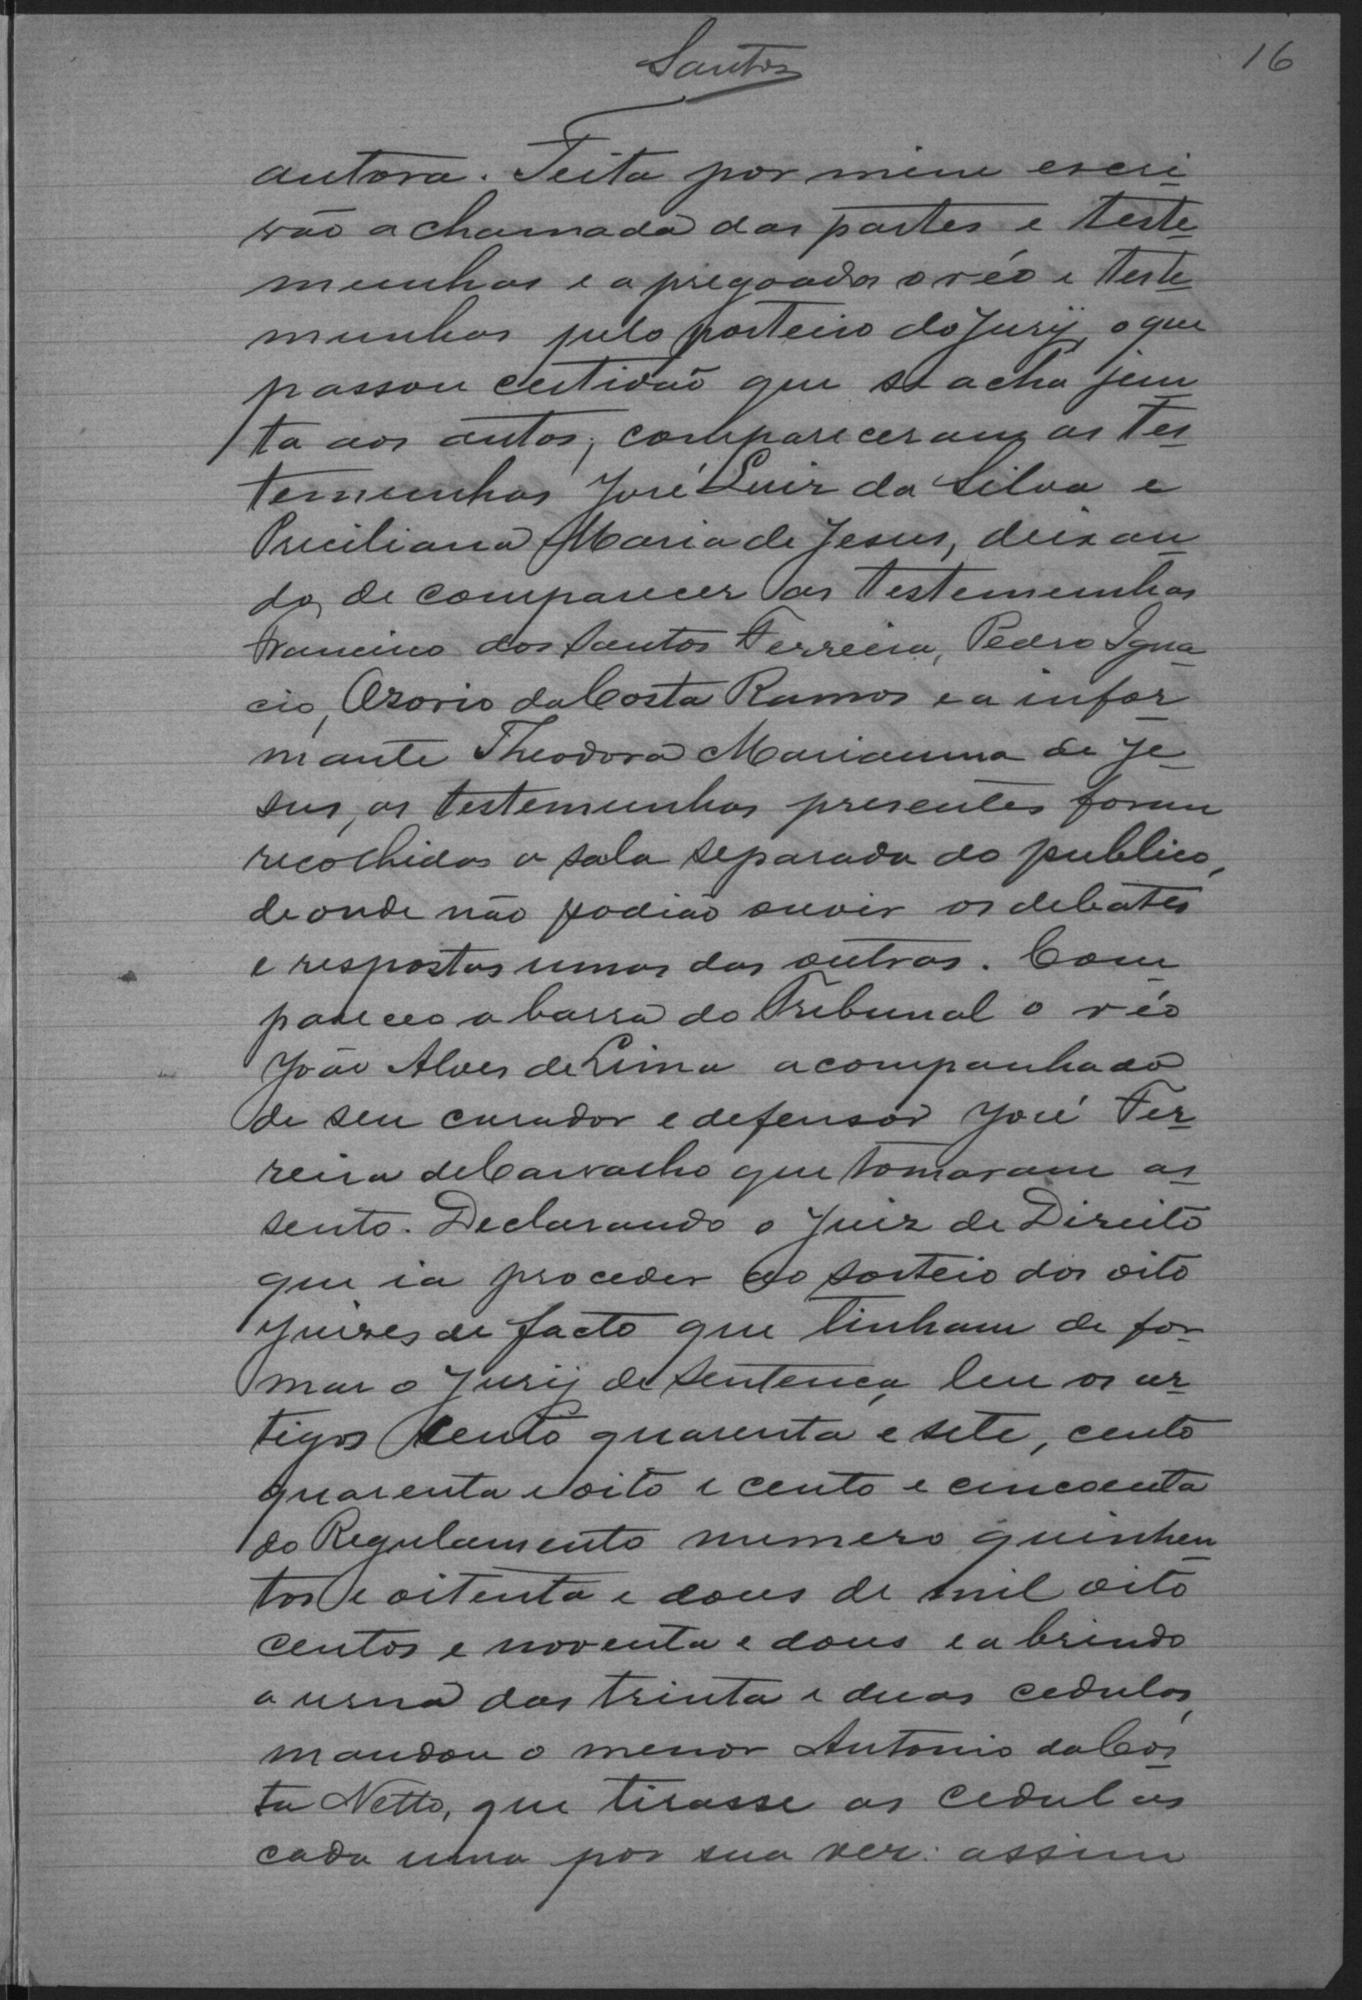 Santos
16
autora. Feita por mim escri
vão a chamada das partes e teste
munhas e apregoados o réo e teste
munhas pelo porteiro do Jury, o que
passou certidão que se acha jun
ta aos autos, compareceram as tes
temunhas José Luiz da Silva e
Preciliana Maria de Jesus, deixan
do de comparecer as testemunhas
Francisco dos Santos Ferreira, Pedro Igna
cio, Ozorio da Costa Ramos e a infor
mante Theodora Marianna de Je
sus, as testemunhas presentes foram
recolhidas a sala separada do publico,
de onde não podião ouvir os debates
e respostas umas das outras. Com
pareceo a barra do Tribunal o réo
João Alves de Lima acompanhado
de seu curador e defensor José Fer
reira de Carvalho que tomaram as
sento. Declarando o Juiz de Direito
que ia proceder ao sorteio dos oito
Juizes de facto que tinham de for
mar o Jury de sentença, leu os ar
tigos cento quarenta e sete, cento
quarenta e oito e cento e cincoenta
do Regulamento numero quinhen
tos e oitenta e dous de mil oito
centos e noventa e dous e abrindo
a urna das trinta e duas cedulas,
mandou o menor Antonio da Cos
ta Netto, que tirasse as cedulas
cada uma por sua vez: assim